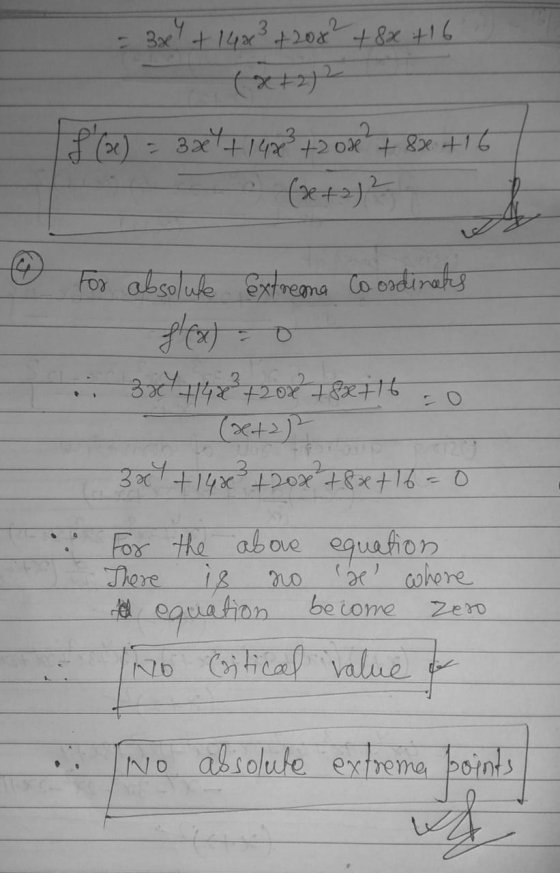 = 3x⁴ + 14x³ + 20x² + 8x + 16
(x+2)²
f'(x) = 3x⁴ + 14x³ + 20x² + 8x + 16
(x+2)²
④ For absolute Extrema Coordinates
f'(x) = 0
∴ 3x⁴ + 14x³ + 20x² + 8x + 16 = 0
(x+2)²
3x⁴ + 14x³ + 20x² + 8x + 16 = 0
∵ For the above equation
There is no 'x' where
equation become zero
∴ No Critical value
∴ No absolute extrema points